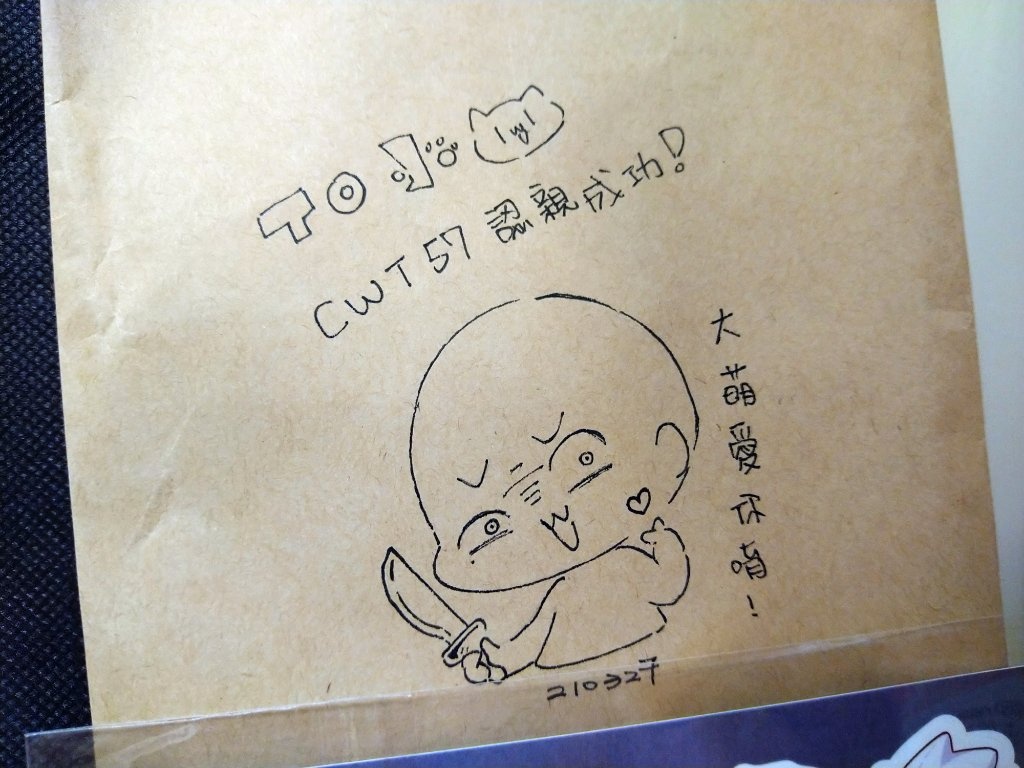 TO
CWT57 認親成功!
大萌愛你唷!
210327